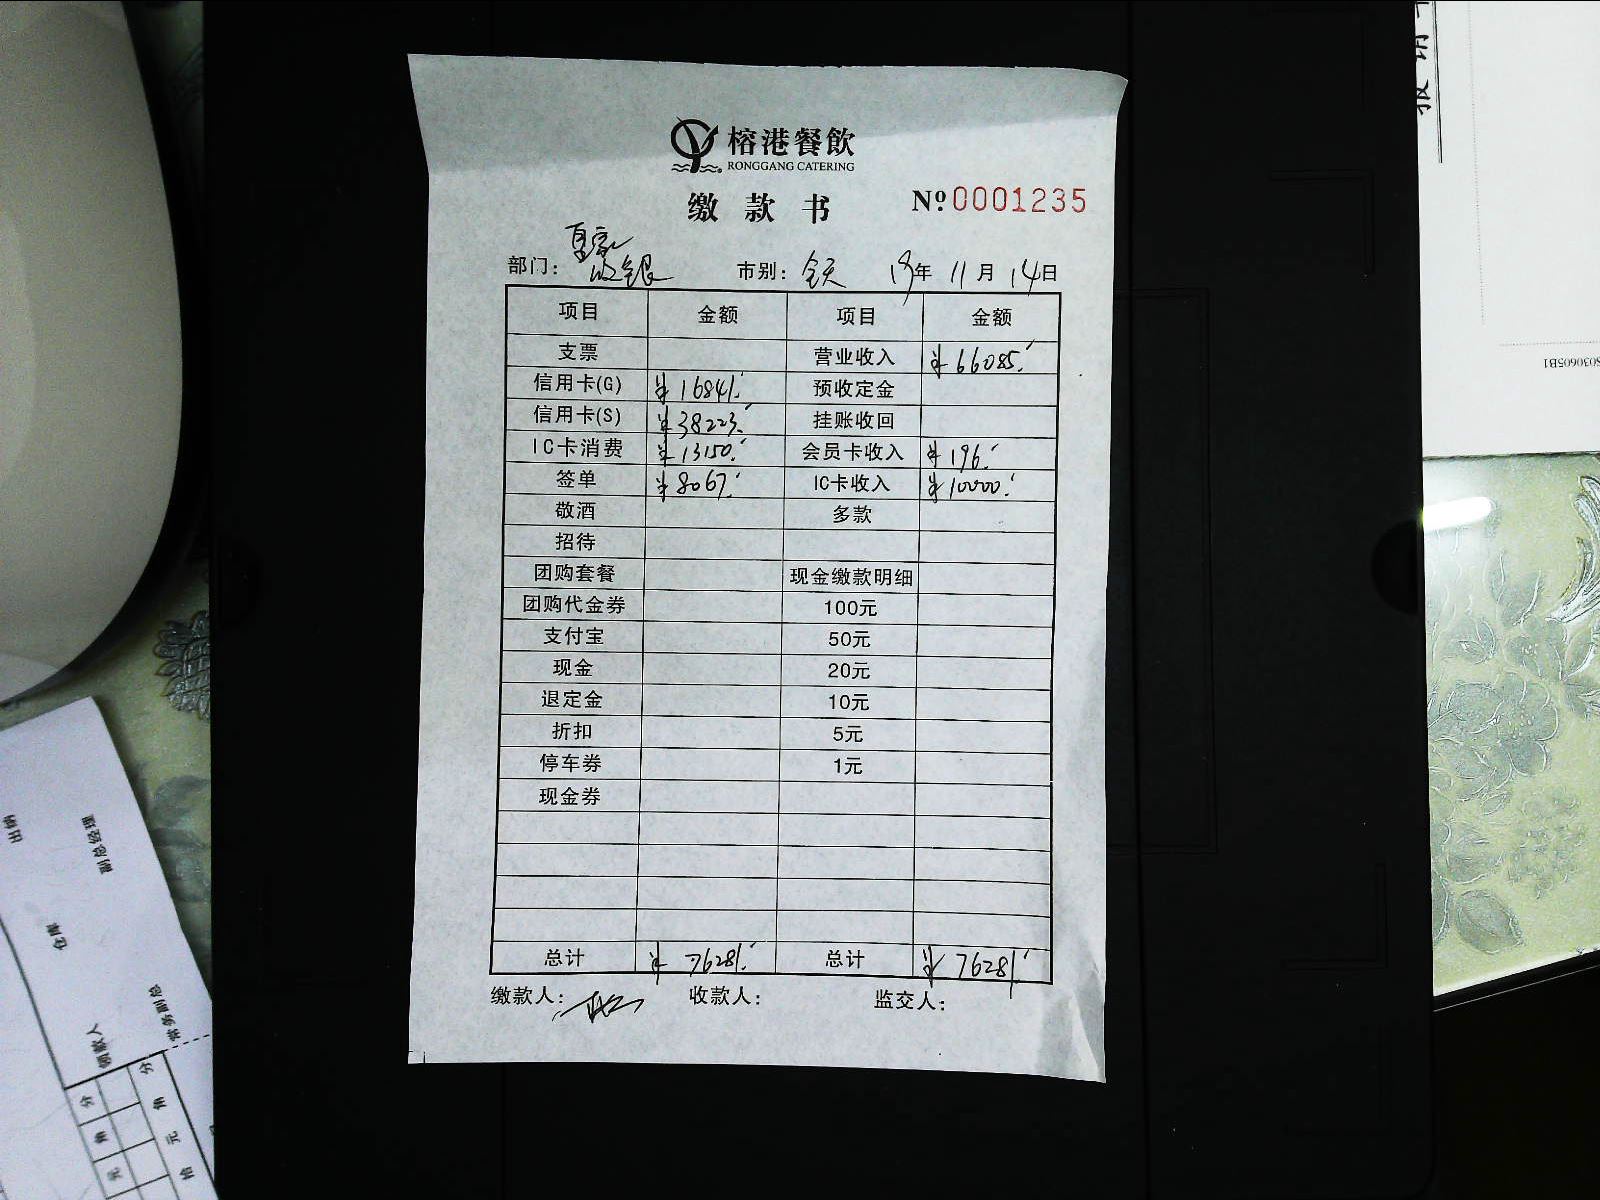 榕港餐飲
RONGGANG CATERING
缴款书 №0001235
部门: 收银 市别: 全天 19年 11月 14日
项目 金额 项目 金额
支票 营业收入 ¥66085.
信用卡(G) ¥16841. 预收定金
信用卡(S) ¥38223. 挂账收回
IC卡消费 ¥13150. 会员卡收入 ¥196.
签单 ¥8067. IC卡收入 ¥10000.
敬酒 多款
招待
团购套餐 现金缴款明细
团购代金券 100元
支付宝 50元
现金 20元
退定金 10元
折扣 5元
停车券 1元
现金券
总计 ¥76281. 总计 ¥76281.
缴款人: 收款人: 监交人:
S030605B1
出纳
副总经理
仓库
常务副总
领款人
分
角
元
分
角
元
拾